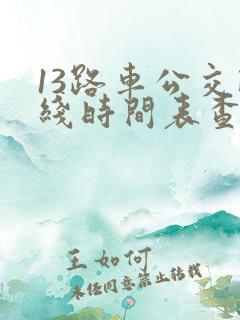 13路車公交
綫時間表查
王如何
未经同意禁止转载